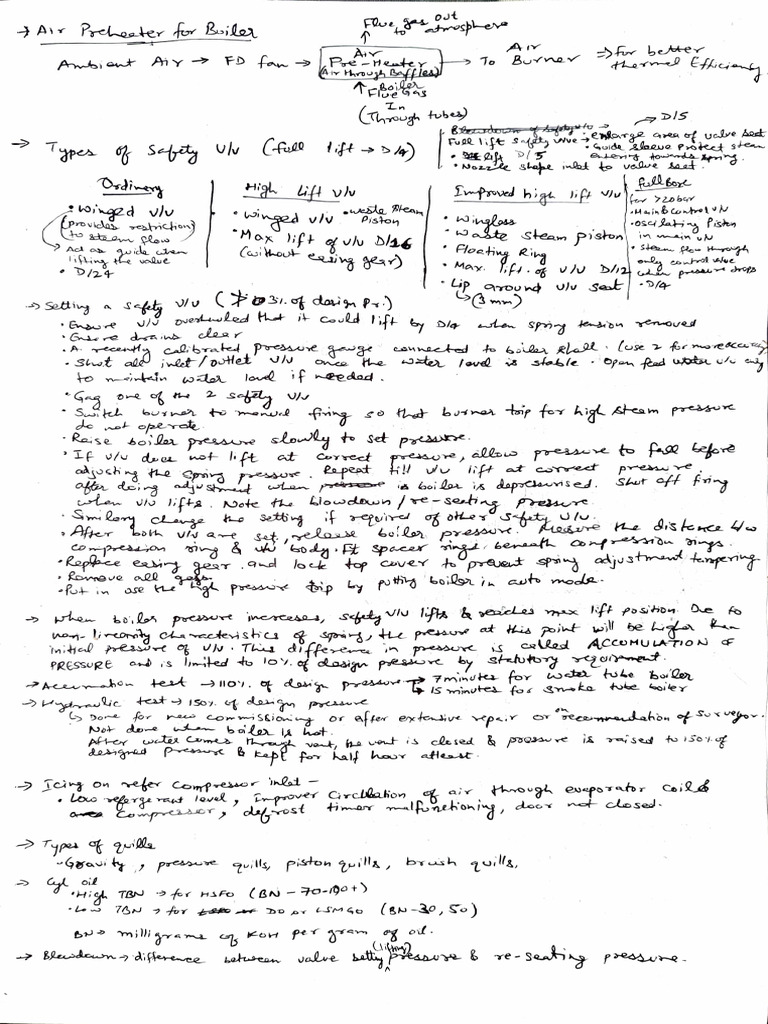 → Air Preheater for Boiler
Flue gas out
to atmosphere
↑
Ambient Air → FD fan → Air Pre-Heater (Air through Baffles) → To Air Burner ⇒ For better thermal Efficiency
↑ Boiler
Flue Gas
In
(Through tubes)
→ Types of Safety V/V (full lift → D/4)
Full lift Safety valve → enlarge area of valve seat
→ D/5
• lift D/5 • Guide Sleeve protect steam
entering towards spring.
• Nozzle shape inlet to valve seat.
Ordinary
• Winged V/V
(provides restriction
to steam flow)
Act as guide when
lifting the valve
• D/24
High Lift V/V
• Winged V/V • waste steam
Piston
• Max lift of V/V D/16
(without easing gear)
Improved high lift V/V
• Wingless
• Waste steam piston
• Floating Ring
• Max. lift of V/V D/12
• Lip around V/V seat
↳ (3mm)
Full Bore
for >20bar
• Main & control V/V
• Oscilating Piston
in main V/V
• Steam flow through
only control valve
when pressure drops
• D/4
→ Setting a safety V/V ( 3% of design Pr.)
• Ensure V/V overhauled that it could lift by D/4 when spring tension removed
• Ensure drains clear
• A recently calibrated pressure gauge connected to boiler shell. (use 2 for more accuracy
• Shut all inlet/outlet V/V once the water level is stable • Open feed water V/V only
to maintain water level if needed.
• Gag one of the 2 safety V/V
• Switch burner to manual firing so that burner trip for high steam pressure
do not operate.
• Raise boiler pressure slowly to set pressure.
• If V/V does not lift at correct pressure, allow pressure to fall before
adjusting the spring pressure. Repeat till V/V lift at correct pressure.
after doing adjustment when boiler is depressurised. Shut off firing
when V/V lifts. Note the blowdown/re-seating pressure.
• Similary change the setting if required of other safety V/V.
• After both V/V are set, release boiler pressure. Measure the distance b/w
compression ring & V/V body. Fit spacer rings beneath compression rings.
• Replace easing gear and lock top cover to prevent spring adjustment tampering
• Remove all gags
• Put in use the high pressure trip by putting boiler in auto mode.
→ When boiler pressure increases, safety V/V lifts & reaches max lift position. Due to
non-linearity characteristics of spring, the pressure at this point will be higher than
initial pressure of V/V. This difference in pressure is called ACCOMULATION OF
PRESSURE and is limited to 10% of design pressure by statutory requirment.
→ Accumation test → 110% of design pressure → 7 minutes for water tube boiler
→ 15 minutes for smoke tube boiler
→ Hydraulic test → 150% of design pressure
↳ Done for new commissioning or after extensive repair or on recommendation of surveyor.
Not done when boiler is hot.
After water comes through vent, the vent is closed & pressure is raised to 150% of
designed pressure & kept for half hour atleast.
→ Icing on refer compressor inlet –
• Low refergerant level, Improver Circulation of air through evaporator coil &
compressor, defrost timer malfunctioning, door not closed.
→ Types of quills
– Gravity, pressure quills, piston quills, brush quills,
→ Cyl oil
• High TBN → for HSFO (BN – 70-100+)
• Low TBN → for DO or LSMGO (BN-30, 50)
BN → milligrams of KOH per gram of oil.
→ Blowdown → difference between valve setting (lifting) pressure & re-seating pressure.